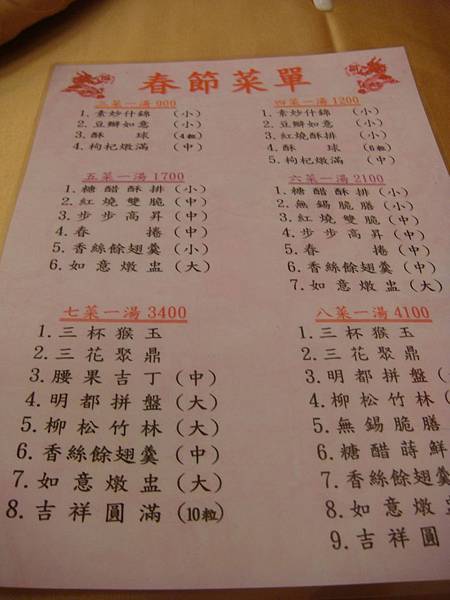 春節菜單
三菜一湯 900
1. 素炒什錦 (小)
2. 豆瓣如意 (小)
3. 酥 球 (4粒)
4. 枸杞燉滿 (中)
四菜一湯 1200
1. 素炒什錦 (小)
2. 豆瓣如意 (小)
3. 紅燒酥排 (小)
4. 酥 球 (6粒)
5. 枸杞燉滿 (中)
五菜一湯 1700
1. 糖醋酥排 (小)
2. 紅燒雙脆 (中)
3. 步步高昇 (中)
4. 春 捲 (中)
5. 香絲餘翅羹 (小)
6. 如意燉盅 (大)
六菜一湯 2100
1. 糖醋酥排 (小)
2. 無錫脆膳 (小)
3. 紅燒雙脆 (中)
4. 步步高昇 (中)
5. 春 捲 (中)
6. 香絲餘翅羹 (中)
7. 如意燉盅 (大)
七菜一湯 3400
1. 三杯猴玉
2. 三花聚鼎
3. 腰果吉丁 (中)
4. 明都拼盤 (大)
5. 柳松竹林 (大)
6. 香絲餘翅羹 (中)
7. 如意燉盅 (大)
8. 吉祥圓滿 (10粒)
八菜一湯 4100
1. 三杯猴玉
2. 三花聚鼎
3. 明都拼盤 (
4. 柳松竹林 (
5. 無錫脆膳
6. 糖醋蒔鮮
7. 香絲餘翅羹
8. 如意燉盅
9. 吉祥圓